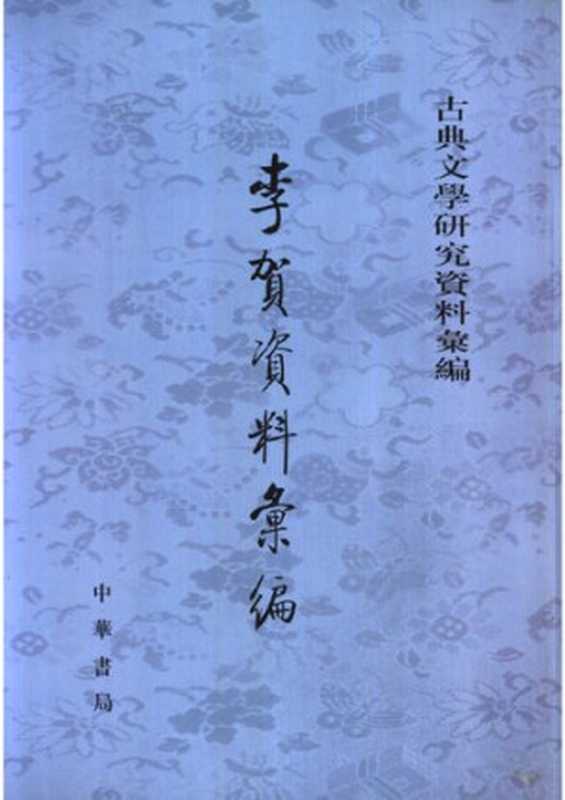 古典文學研究資料彙編
李賀資料彙編
中華書局